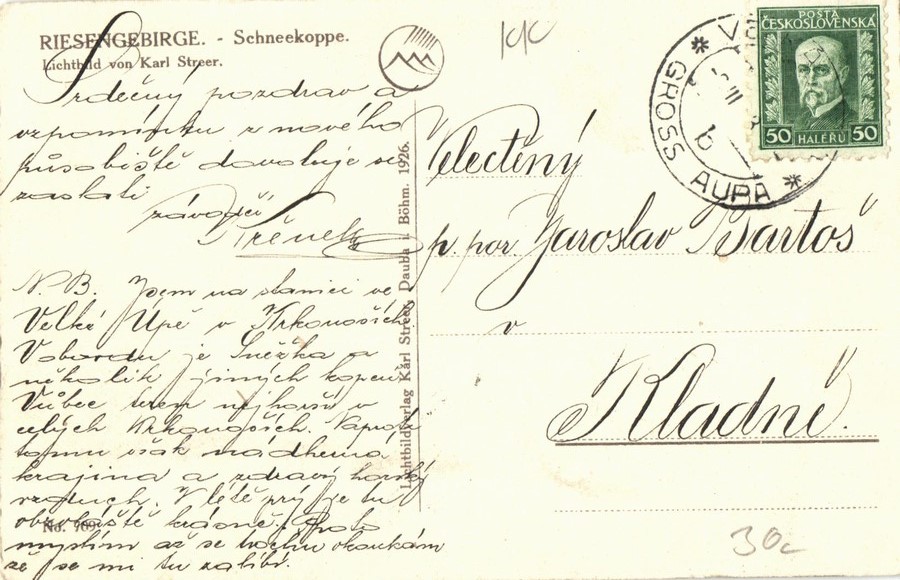 RIESENGEBIRGE. - Schneekoppe.
Lichtbild von Karl Streer.
Srdečný pozdrav a
vzpomínku z nového
působiště dovoluje se
zaslati
závodčí
Křenek
N.B. Jsem na stanici ve
Velké Úpě v Krkonoších.
V obvodu je Sněžka a
několik jiných kopců.
Vůbec teren nejhorší v
celých Krkonoších. Naproti
tomu však nádherná
krajina a zdravý horský
vzduch. V létě prý je tu
obzvláště krásně. Proto
myslím až se trochu okoukám
že se mi tu zalíbí.
No. 769
Lichtbildverlag Karl Streer, Dauba i. Böhm. 1926.
POSTA
ČESKOSLOVENSKÁ
50 HALÉŘŮ 50
GROSS AUPA
Velectěný
p. por. Jaroslav Bartoš
v
Kladně.
30c